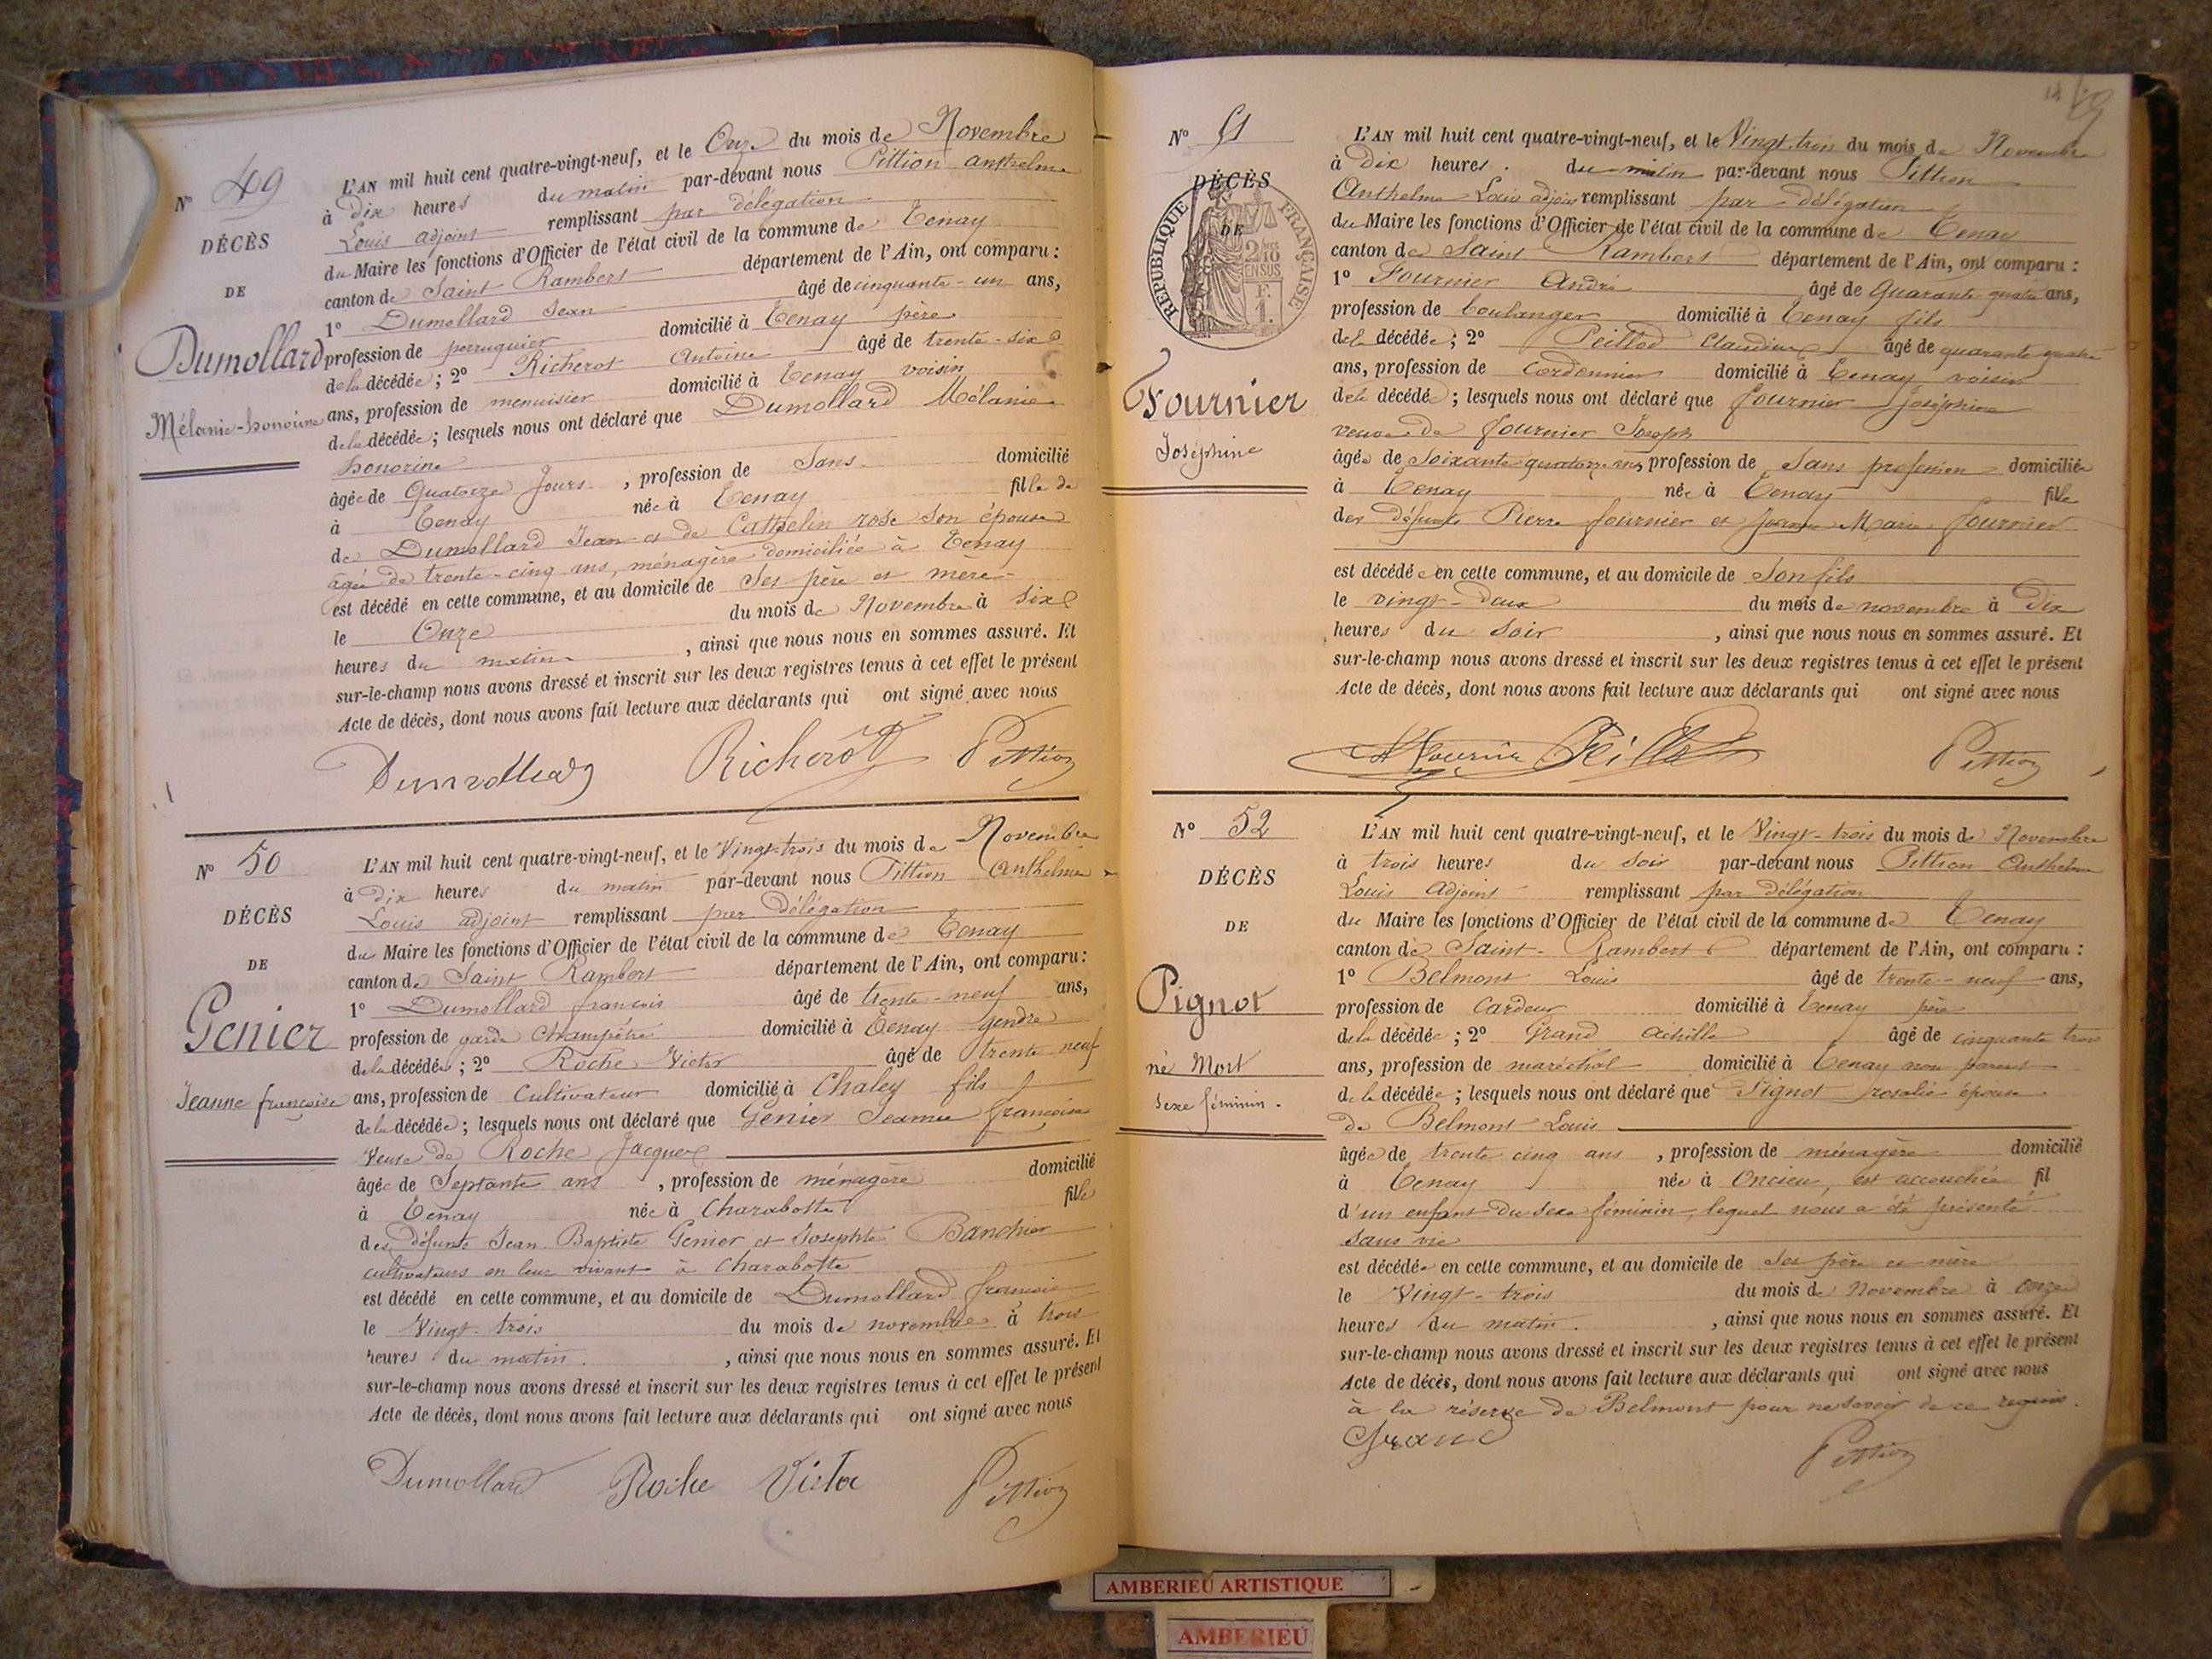 Nº 49
DÉCÈS
DE
Dumollard
Mélanie-honorine
L'AN mil huit cent quatre-vingt-neuf, et le Onze du mois de Novembre
à Dix heures du matin par-devant nous Pittion anthelme
Louis adjoint remplissant par délégation
du Maire les fonctions d'Officier de l'état civil de la commune de Tenay
canton de Saint Rambert département de l'Ain, ont comparu :
1º Dumollard Jean âgé de cinquante-un ans,
profession de perruquier domicilié à Tenay père
de la décédée ; 2º Richerot Antoine âgé de trente-six
ans, profession de menuisier domicilié à Tenay voisin
de la décédée ; lesquels nous ont déclaré que Dumollard Mélanie
honorine
âgée de Quatorze Jours , profession de Sans domicilié
à Tenay née à Tenay fille de
de Dumollard Jean et de Cathelin rose son épouse
âgée de trente-cinq ans, ménagère domiciliée à Tenay
est décédé en cette commune, et au domicile de Ses père et mère
le Onze du mois de Novembre à six
heures du matin , ainsi que nous nous en sommes assuré. Et
sur-le-champ nous avons dressé et inscrit sur les deux registres tenus à cet effet le présent
Acte de décès, dont nous avons fait lecture aux déclarants qui ont signé avec nous
Dumollard Richerot Pittion
Nº 50
DÉCÈS
DE
Genier
Jeanne françoise
L'AN mil huit cent quatre-vingt-neuf, et le Vingt-trois du mois de Novembre
à Dix heures du matin par-devant nous Pittion Anthelme
Louis adjoint remplissant par délégation
du Maire les fonctions d'Officier de l'état civil de la commune de Tenay
canton de Saint Rambert département de l'Ain, ont comparu :
1º Dumollard françois âgé de trente-neuf ans,
profession de garde champêtre domicilié à Tenay gendre
de la décédée ; 2º Roche Victor âgé de trente neuf
ans, profession de Cultivateur domicilié à Chaley fils
de la décédée ; lesquels nous ont déclaré que Genier Jeanne françoise
Veuve de Roche Jacques
âgée de Septante ans , profession de ménagère domicilié
à Tenay née à Charabotte fille
des défunts Jean Baptiste Genier et Josephte Banchier
cultivateurs en leur vivant à Charabotte
est décédé en cette commune, et au domicile de Dumollard françois
le Vingt-trois du mois de novembre à trois
heures du matin. , ainsi que nous nous en sommes assuré. Et
sur-le-champ nous avons dressé et inscrit sur les deux registres tenus à cet effet le présent
Acte de décès, dont nous avons fait lecture aux déclarants qui ont signé avec nous
Dumollard Roche Victor Pittion
19
Nº 51
DÉCÈS
DE
RÉPUBLIQUE FRANÇAISE
2/10 EN SUS
F.
1.
Fournier
Joséphine
L'AN mil huit cent quatre-vingt-neuf, et le Vingt-trois du mois de Novembre
à Dix heures du matin par-devant nous Pittion
Anthelme Louis adjoint remplissant par délégation
du Maire les fonctions d'Officier de l'état civil de la commune de Tenay
canton de Saint Rambert département de l'Ain, ont comparu :
1º Fournier André âgé de Quarante quatre ans,
profession de boulanger domicilié à Tenay fils
de la décédée ; 2º Peillod Claudius âgé de quarante quatre
ans, profession de Cordonnier domicilié à Tenay voisin
de la décédée ; lesquels nous ont déclaré que fournier Joséphine
veuve de fournier Joseph
âgée de Soixante quatorze ans, profession de Sans profession domiciliée
à Tenay née à Tenay fille
des défunts Pierre fournier et Jeanne Marie fournier
est décédée en cette commune, et au domicile de Son fils
le vingt-deux du mois de novembre à Dix
heures du soir , ainsi que nous nous en sommes assuré. Et
sur-le-champ nous avons dressé et inscrit sur les deux registres tenus à cet effet le présent
Acte de décès, dont nous avons fait lecture aux déclarants qui ont signé avec nous
Fournier Peillod Pittion
Nº 52
DÉCÈS
DE
Pignot
né Mort
sexe féminin.
L'AN mil huit cent quatre-vingt-neuf, et le Vingt-trois du mois de Novembre
à trois heures du soir par-devant nous Pittion Anthelme
Louis Adjoint remplissant par délégation
du Maire les fonctions d'Officier de l'état civil de la commune de Tenay
canton de Saint-Rambert département de l'Ain, ont comparu :
1º Belmont Louis âgé de trente-neuf ans,
profession de Cardeur domicilié à Tenay père
de la décédée ; 2º Grand Achille âgé de cinquante trois
ans, profession de maréchal domicilié à Tenay non parent
de la décédée ; lesquels nous ont déclaré que Pignot rosalie épouse
de Belmont Louis
âgée de trente cinq ans , profession de ménagère domicilié
à Tenay née à Oncieu, est accouchée fil
d'un enfant du sexe féminin, lequel nous a été présenté
sans vie
est décédée en cette commune, et au domicile de ses père et mère
le Vingt-trois du mois de Novembre à onze
heures du matin. , ainsi que nous nous en sommes assuré. Et
sur-le-champ nous avons dressé et inscrit sur les deux registres tenus à cet effet le présent
Acte de décès, dont nous avons fait lecture aux déclarants qui ont signé avec nous
à la réserve de Belmont pour ne savoir de ce requis.
Grand Pittion
AMBERIEU ARTISTIQUE
AMBERIEU